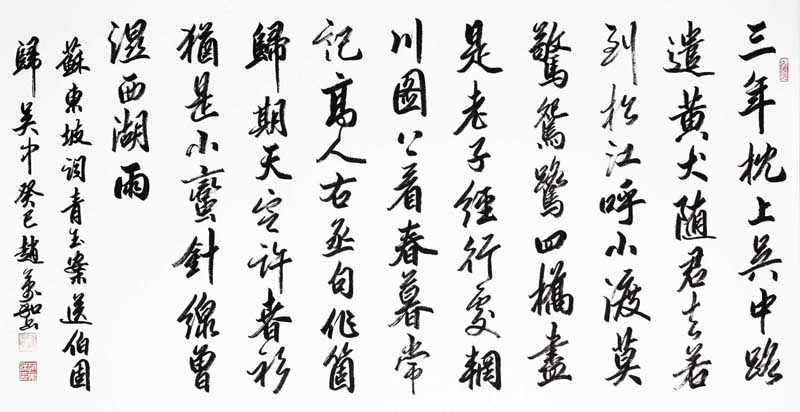 三年枕上吳中路
遣黃犬随君去若
到松江呼小渡莫
驚鴛鷺四橋盡
是老子經行處輞
川圖上看春暮常
記高人右丞句作箇
歸期天定許春衫
猶是小蠻針線曾
湿西湖雨
蘇東坡詞青玉案送伯固
歸吳中癸巳趙